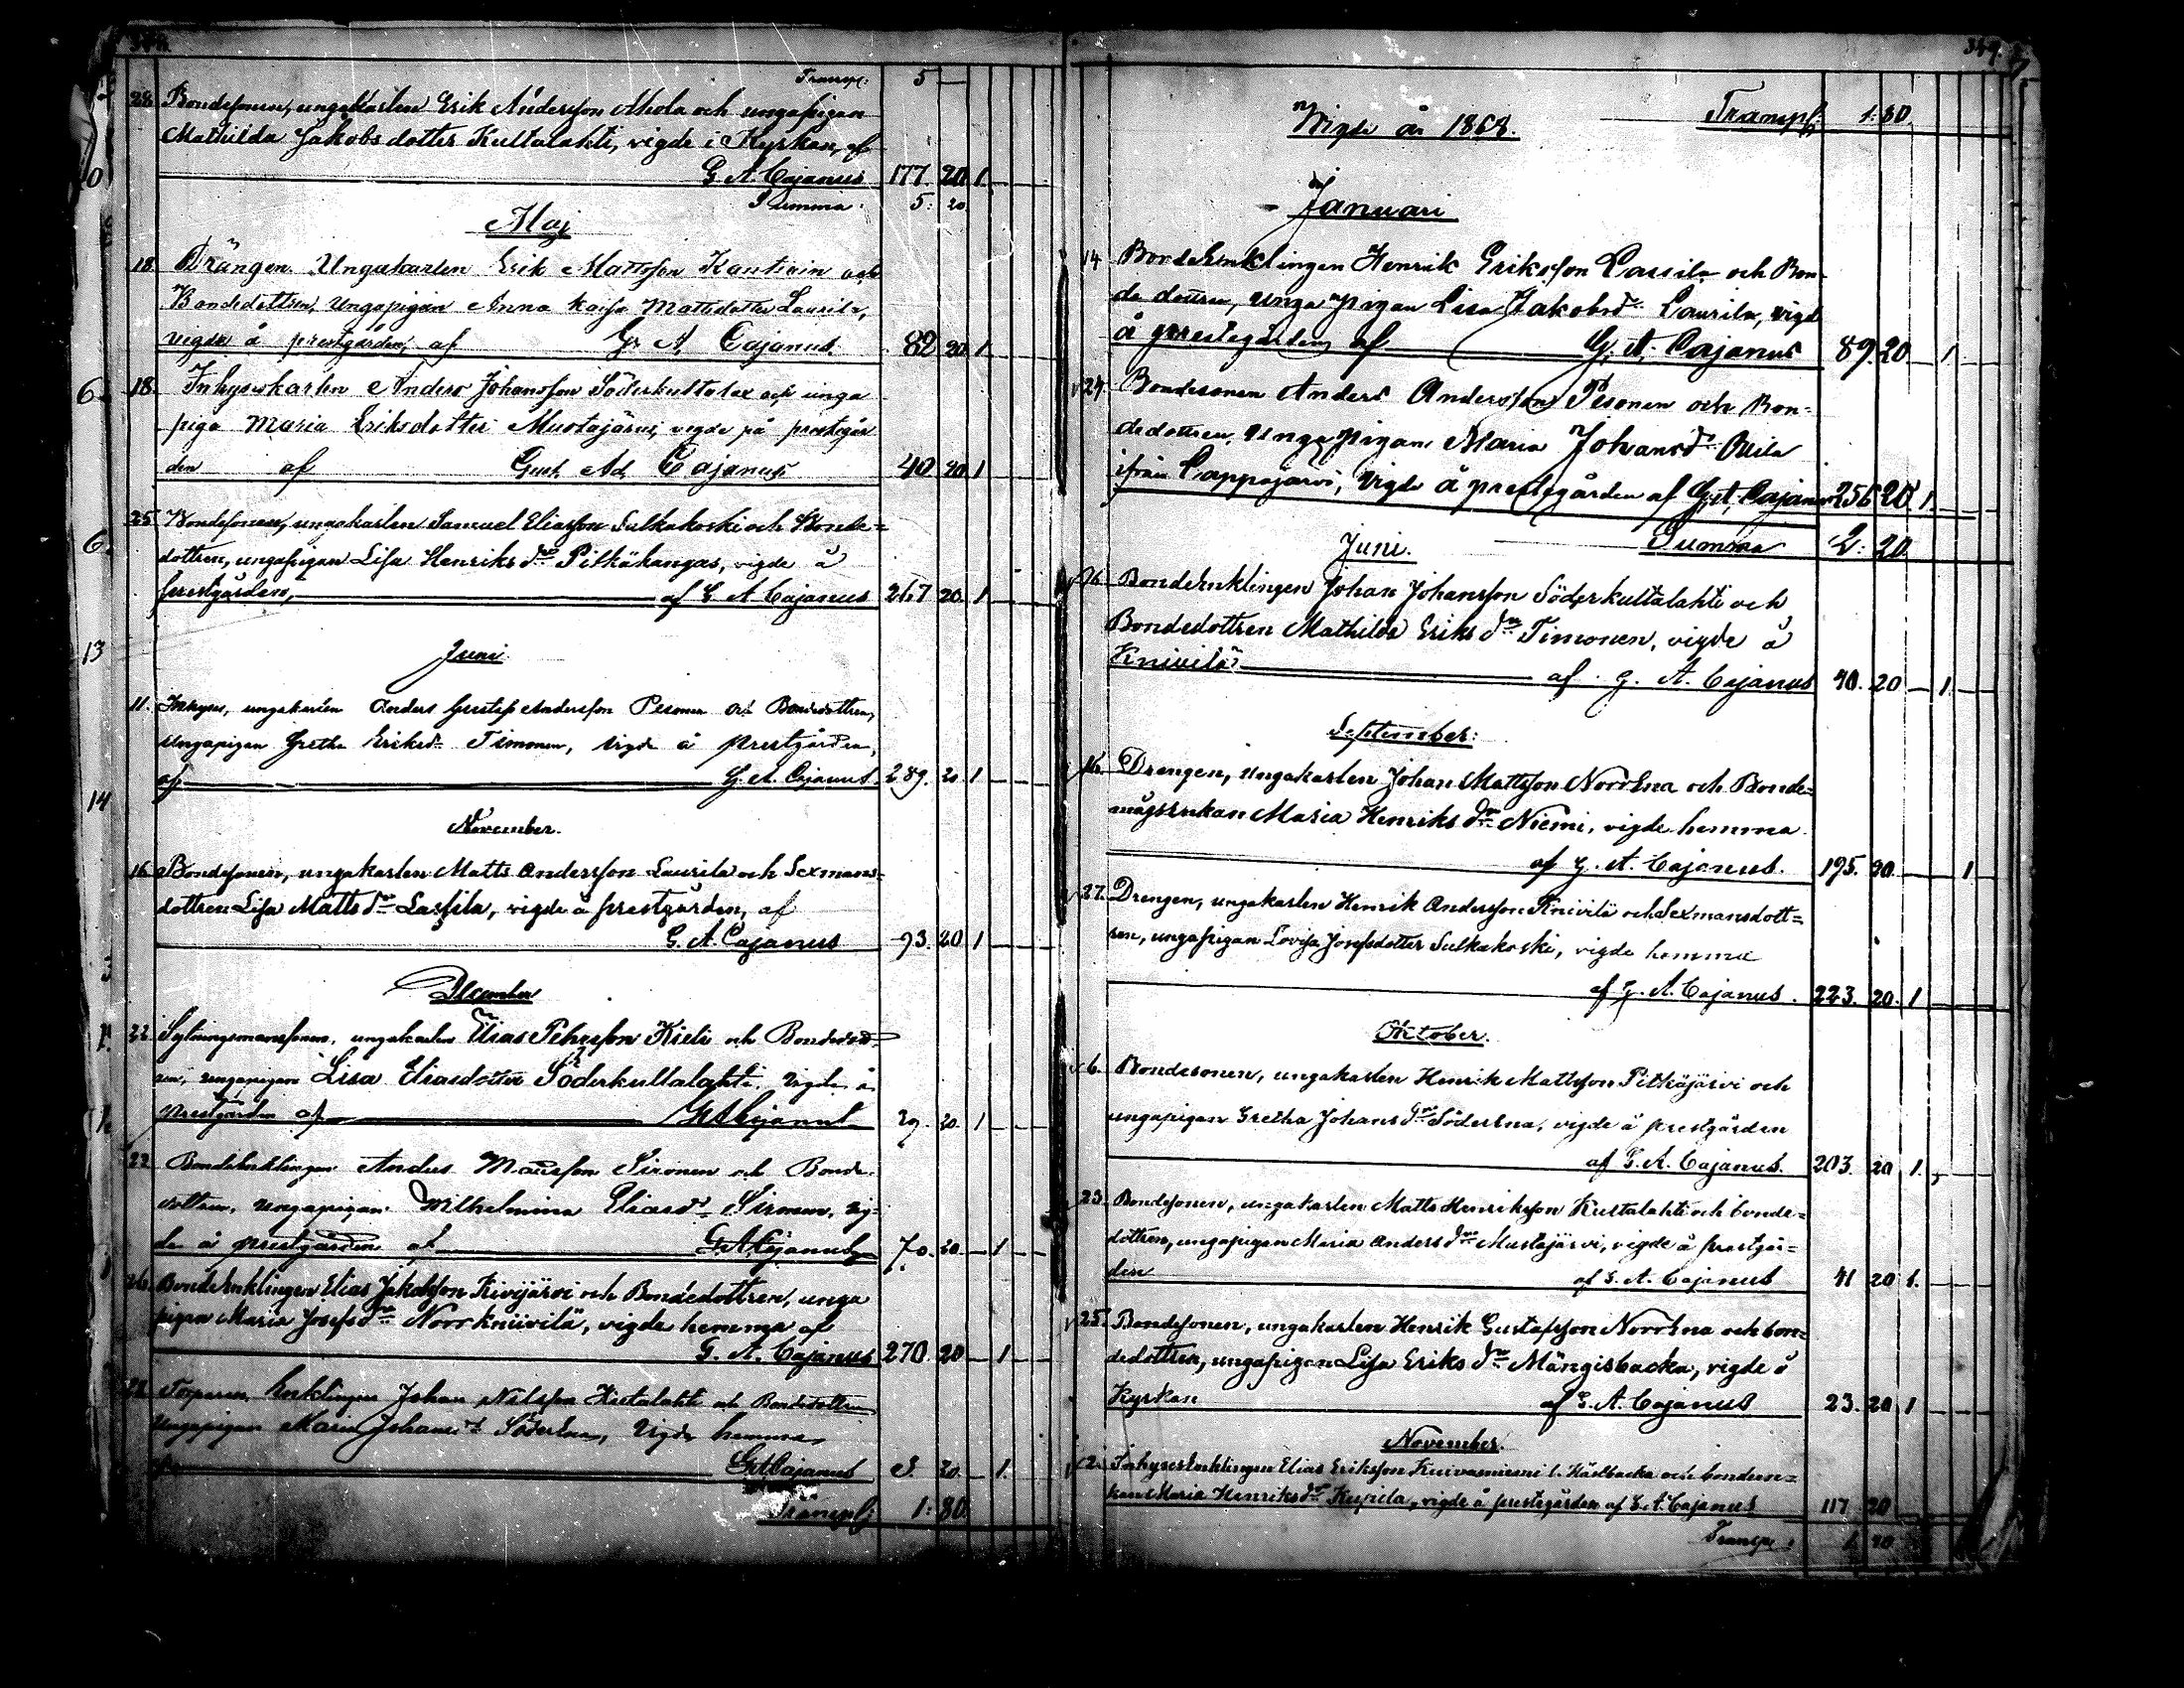 Transp: 5 —
28. Bondesonen, ungakarlen Erik Andersson Ahola och ungapigan
Mathilda Jakobsdotter Kultalahti, vigde i Kyrkan, af
G A Cajanus 177. 20. 1
Summa 5: 20
Maj
18. Drängen Ungakarlen Erik Mattsson Kautiain och
Bondedottren, Ungapigan Anna Kaisa Mattsdotter Laurila,
vigde å prestgården, af G. A. Cajanus. 82 20 1
18. Inhyseskarlen Anders Johansson Söderkultalax och unga
piga Maria Eriksdotter Mustajärvi, vigde på prestgår
den af Gust. Ad. Cajanus 40 20 1
25. Bondesonen, ungakarlen Samuel Eliasson Sulkakoski och Bonde=
dottren, ungapigan Lisa Henriks dr Pitkäkangas, vigde å
prestgården, af G A Cajanus 267 20 1
Juni
11. Inhyses, ungakarlen Anders Gustaf Andersson Pesonen och Bondedottren,
Ungapigan Gretha Eriksd. Timonen, vigde å prestgården,
af G. A. Cajanus 289. 20 1
November.
16. Bondesonen, ungakarlen Matts Andersson Laurila och Sexmans=
dottren Lisa Matts dr Lassila, vigde å prestgården, af
G. A. Cajanus 93. 20 1
December
22. Sytningsmanssonen, ungakarlen Elias Pehrsson Kieli och Bondedott=
ren, ungapigan Lisa Eliasdotter Söderkultalahti. Vigde å
Prestgården af G A Cajanus 29. 20. 1
22. Bondeenklingen Anders Mattsson Sironen och Bonde=
dottren, ungapigan Wilhelmina Eliasd. Sironen, vig=
de å prestgården af G A Cajanus 70. 20 1
26. Bondeenklingen Elias Jakobsson Kivijärvi och Bondedottren, unga
pigan Maria Josefs dr Norrkniivilä, vigde hemma af
G. A. Cajanus 270. 20 1
28. Torparen Enklingen Johan Nilsson Kultalahti och Bondedottren
Ungapigan Maria Johansd. Söderena, Vigde hemma
G A Cajanus 20. 1
Transp: 1: 80.
349.
Vigde år 1868. Transp: 1: 80
Januari
14. Bondeenklingen Henrik Eriksson Lassila och Bon=
dedottren, unga pigan Lisa Jakobsd. Laurila, vigd
å prestegården af G. A. Cajanus 89. 20. 1
24. Bondesonen Anders Andersson Pesonen och Bon=
dedottren, Ungapigan Maria Johansd.
ifrån Lappajärvi, Vigde å prestegården af G. A. Cajanus 256 20. 1.
Juni. Summa 2: 20
26. Bondeenklingen Johan Johansson Söderkultalahti och
Bondedottren Mathilda Eriks dr Timonen, vigde å
Knivilä af G. A. Cajanus 40. 20 1.
September:
16. Drengen, Ungakarlen Johan Mattsson Norrena och Bonde=
mågsenkan Maria Henriks dr Niemi, vigde hemma
af G. A. Cajanus. 195. 20. 1
27. Drengen, ungakarlen Henrik Andersson Knivilä och Sexmansdott=
ren, ungapigan Lovisa Josefsdotter Sulkakoski, vigde hemma
af G. A. Cajanus. 223. 20. 1
Oktober.
6. Bondesonen, ungakarlen Henrik Mattsson Pitkäjärvi och
ungapigan Gretha Johans dr Söderena, vigde å prestgården
af G. A. Cajanus. 203. 20 1.
23. Bondesonen, ungakarlen Matts Henriksson Kultalahti och bonde=
dottren, ungapigan Maria Anders dr Mustajärvi, vigde å prestgår=
den af G. A. Cajanus 41 20 1.
25. Bondesonen, ungakarlen Henrik Gustafsson Norrena och bon=
dedottren, ungapigan Lisa Eriks dr Mängisbacka, vigde å
Kyrkan af G. A. Cajanus 23. 20 1
November.
2. Inhysesenklingen Elias Eriksson Kuivamiemi l. Käelbacka och bonden=
kan Maria Henriks dr Kujrila, vigde å prestegården af G. A. Cajanus 117 20
Transp: 1 40